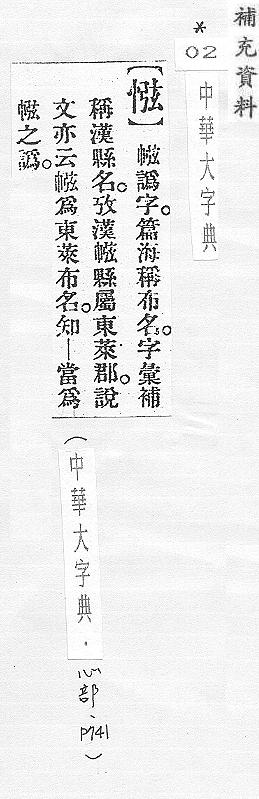 補充資料
*
02
中華大字典
【】
㡉譌字。篇海稱布名。字彙補
稱漢縣名。攷漢㡉縣屬東萊郡。說
文亦云㡉爲東萊布名。知—當爲
㡉之譌。
(中華大字典.心部、P741)